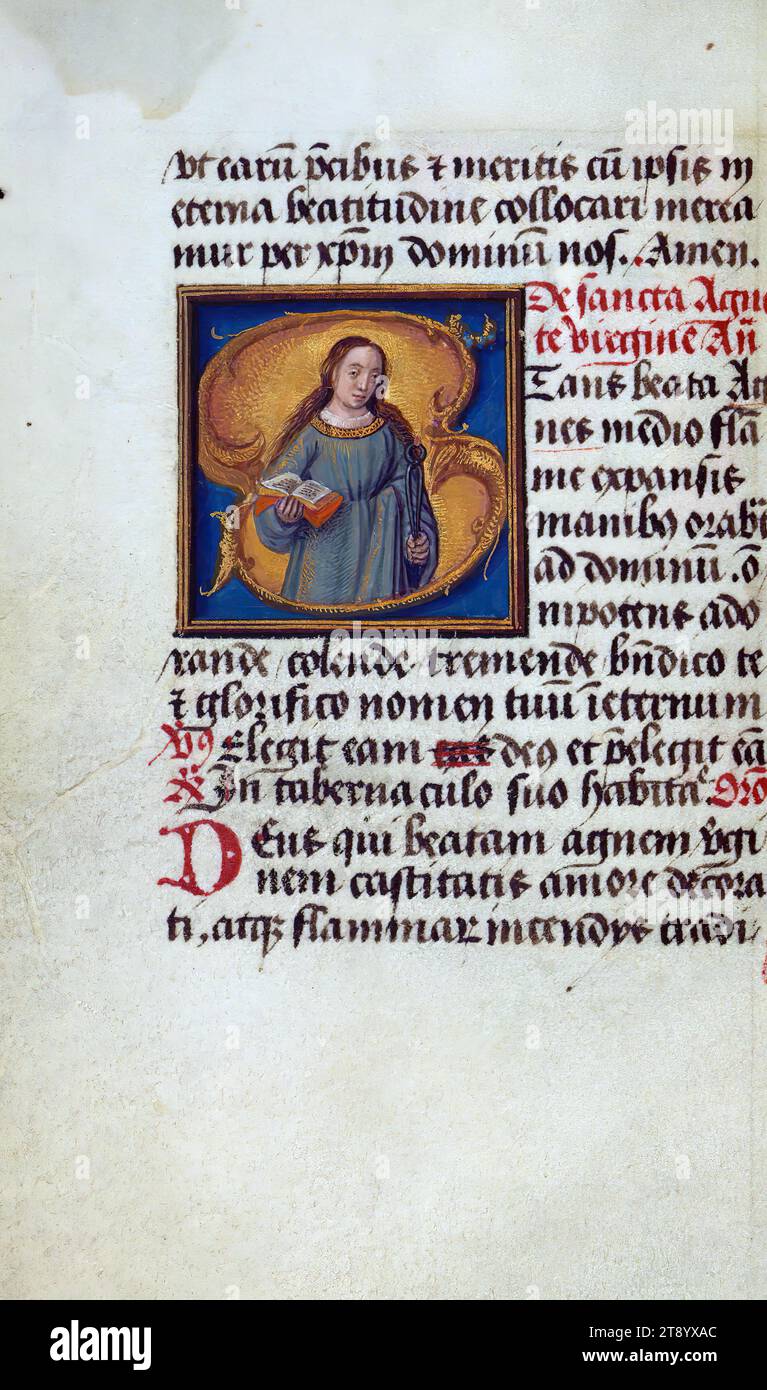 vt earū p̄cibus ⁊ meritis cū ipsis in
eterna beatitudine collocari merea
mur per xp̄m dominū nos. Amen.
De sancta Agne
te virgine Añ
Tans beata Ag
nes medio flā
me expansis
manibꝯ orabat
ad dominū. ō
nipotens ado
rande colende tremende bn̄dico te
⁊ glorifico nomen tuū īeternum
Elegit eam deꝯ et p̄elegit eā
In tabernaculo suo habita
Deus qui beatam agnem v̄gi
nem castitatis amore decora
ti, atqꝫ flammar incendys tradi
alamy
alamy
alamy
alamy
Image ID: 2T8YXAC
www.alamy.com